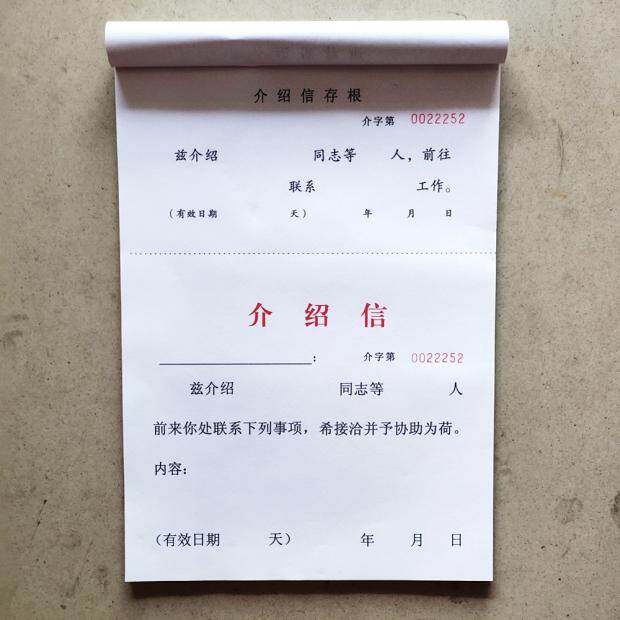 介绍信存根
介字第 0022252
兹介绍 同志等 人，前往
联系 工作。
（有效日期 天） 年 月 日
介绍信
： 介字第 0022252
兹介绍 同志等 人
前来你处联系下列事项，希接洽并予协助为荷。
内容：
（有效日期 天） 年 月 日